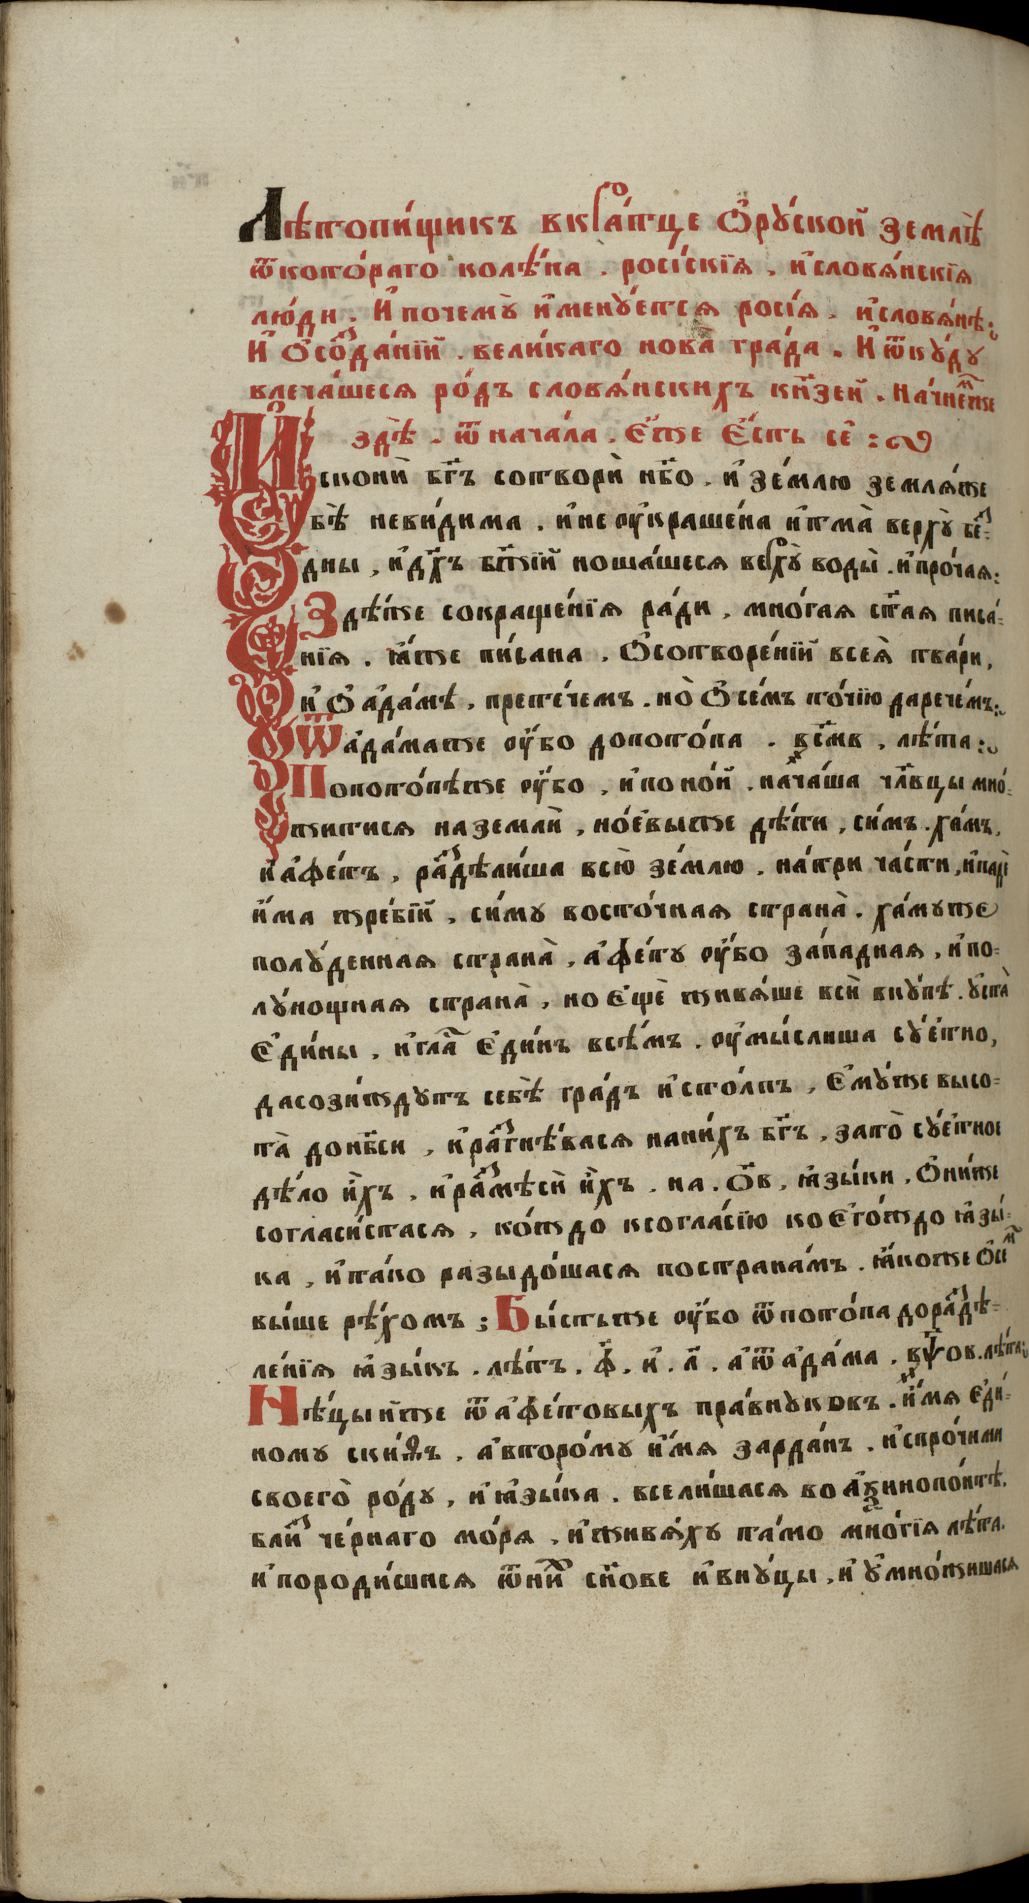 Лѣтопи́щикъ вкра́тце Ѡ҆ру́ской землѣ̀
ѿкото́раго колѣ́на . росі́скїѧ , и҆словѧ́нскїѧ
лю́ди . И҆почемꙋ̀ и҆менꙋ́етсѧ росі́ѧ . и҆словѧ́нѣ :
И҆ Ѡ҆созда́нїй . вели́каго нова̀ гра́да . И҆ ѿкꙋ́дꙋ
влеча́шесѧ ро́дъ словѧ́нскихъ кн҃зей . На́чнемже
здѣ̀ . ѿ нача́ла . Є҆́же Є҆́сть сѐ :
И҆скони̑ бг҃ъ сотворѝ нб҃о . и҆ зе́млю землѧ́же
бѣ̀ неви́дима . и҆не ᲂу҆краше́на и҆тма̀ верхꙋ̀ бе́з-
дны , и҆дх҃ъ бж҃їй ноша́шесѧ верхꙋ̀ воды̀ . и҆про́чаѧ :
Здѣ́же сокраще́нїѧ ра́ди , мно́гаѧ ст҃аѧ писа́-
нїѧ . ꙗ҆́же пи́сана , Ѡ҆сотворе́нїй всеѧ̀ тва́ри ,
и҆ Ѡ҆ а҆да́мѣ , прете́чемъ . но̀ Ѡ҆се́мъ то́чїю даре́чемъ :
Ѿ а҆да́маже ᲂу҆́бо допото́па . в҂смв , лѣ́та :
Попото́пѣже ᲂу҆́бо , и҆по но́й . нача́ша чл҃вцы мно́-
житисѧ наземлѝ , но́евыже дѣ́ти , си́мъ . ха́мъ ,
и҆ а҆фе́тъ , раздѣли́ша всю̀ зе́млю . на́три ча́сти , и҆падѐ
и҆́ма жре́бїй , си́мꙋ восто́чнаѧ страна̀ . ха́мꙋже
полꙋ́деннаѧ страна̀ , а҆фе́тꙋ ᲂу҆́бо за́паднаѧ , и҆по-
лꙋ́нощнаѧ страна̀ , но є҆щѐ живѧ́ше всѝ вкꙋ́пѣ . ꙋ҆ста̀
Є҆ди́ны , и҆гла́съ є҆ди́нъ всѣ́мъ . ᲂу҆мы́слиша сꙋ́етно ,
дасози́ждꙋтъ себѣ̀ гра́дъ и҆ сто́лпъ , Є҆мꙋ́же высо-
та̀ донб҃си , и҆разгнѣ́васѧ нани́хъ бг҃ъ , зато̀ сꙋ́етное
дѣ́ло и҆̀хъ , и҆размѣсѝ и҆̀хъ . на . ѻ҃в , ꙗ҆зы́ки , Ѻ҆ни́же
согласи́стасѧ , ко́ждо ксогла́сїю коегѡ́ждо ꙗ҆зы́-
ка , и҆та́ко разыдо́шасѧ постра́намъ . ꙗ҆́коже Ѡ҆сем
вы́ше рѣ́хомъ ; Бы́стьже ᲂу҆́бо ѿпото́па дораздѣ-
ле́нїѧ ꙗ҆зы́къ . лѣ́тъ . ф҃ . к҃ . л҃ . а҆ѿ а҆да́ма . в҂ѱов . лѣ́та :
Нѣ́цыиже ѿ а҆фе́товыхъ пра́внꙋкѡвъ . и҆́мѧ є҆ди́-
номꙋ ски́ѳъ , а҆второ́мꙋ и҆́мѧ зарда́нъ . и҆спро́чими
своегѡ̀ ро́дꙋ , и҆ꙗ҆зы́ка . всели́шасѧ во а҆ѯинопо́нтѣ .
близ че́рнаго мо́рѧ , и҆живѧ́хꙋ та́мо мно́гїѧ лѣ́та .
и҆породи́шисѧ ѿни́х сн҃ове и҆внꙋ́цы , и҆ ꙋ҆мно́жишасѧ